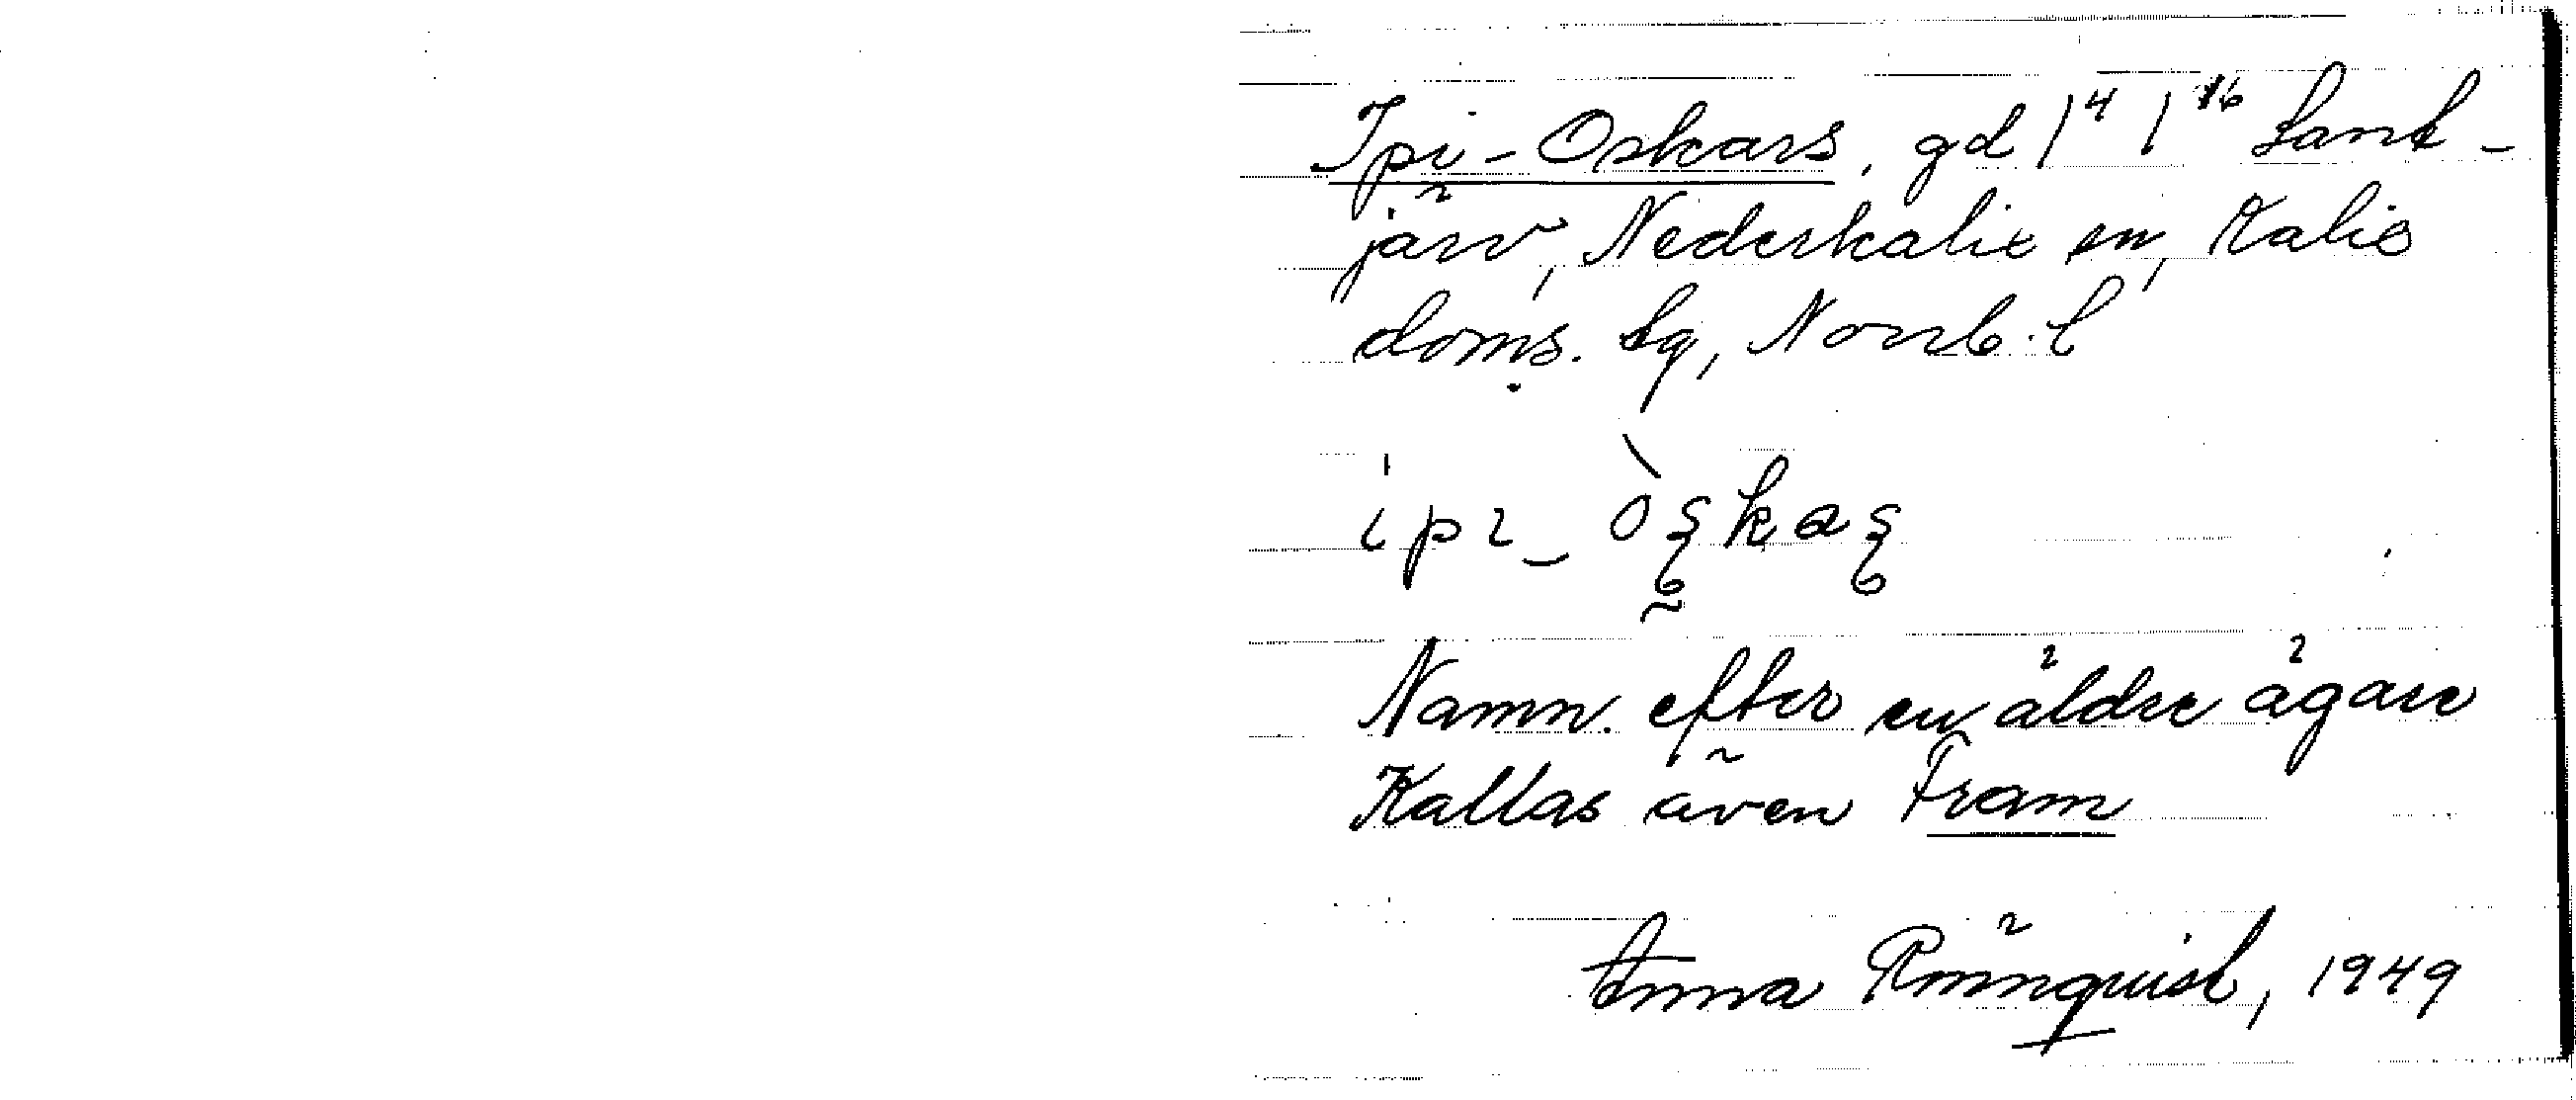 Ipi-Oskars, gd 1⁴ 1¹⁶ Lant-
järv, Nederkalix sn, Kalix
doms. lg, Norrb. l
Namn. efter en äldre ägare
Kallas även Fram
Anna Rönnquist, 1949